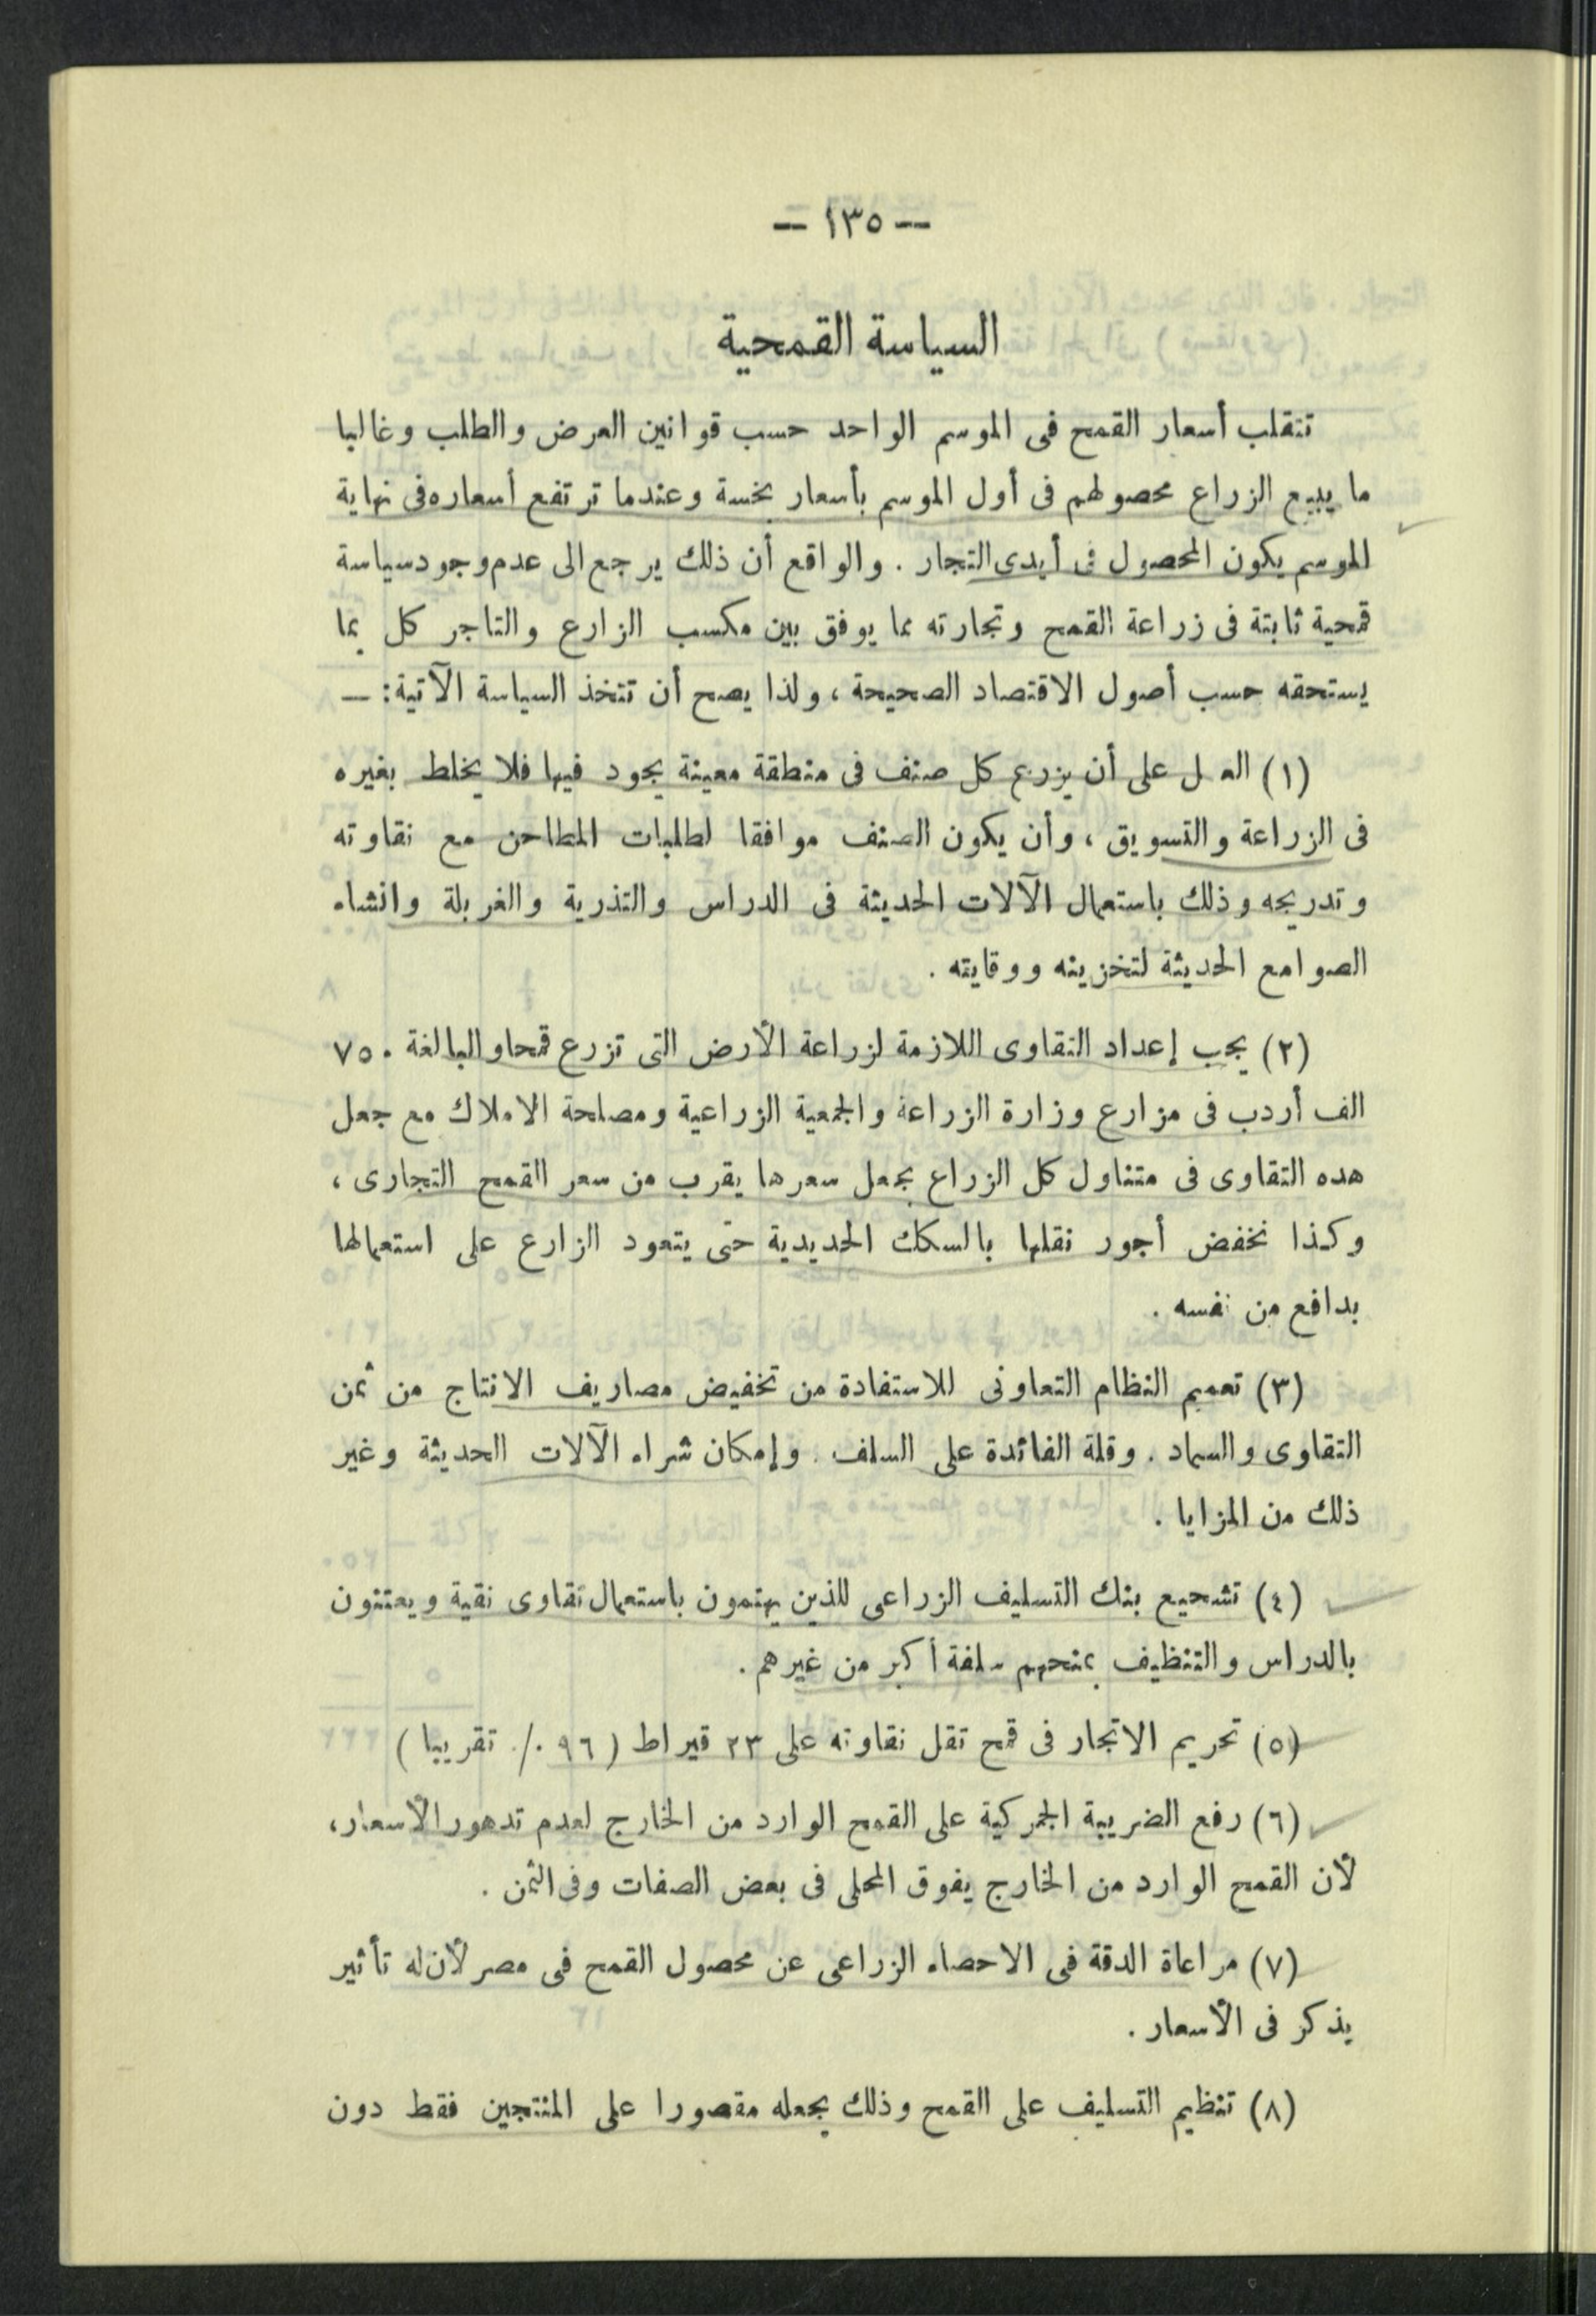 — ١٣٥ —
السياسة القمحية
تتقلب أسعار القمح فى الموسم الواحد حسب قوانين العرض والطلب وغالبا
ما يبيع الزراع محصولهم فى أول الموسم بأسعار بخسة وعندما ترتفع أسعاره فى نهاية
الموسم يكون المحصول فى أيدى التجار . والواقع أن ذلك يرجع الى عدم وجود سياسة
قمحية ثابتة فى زراعة القمح وتجارته مما يوفق بين مكسب الزارع والتاجر كل بما
يستحقه حسب أصول الاقتصاد الصحيحة ، ولذا يصح أن تتخذ السياسة الآتية : —
(١) العمل على أن يزرع كل صنف فى منطقة معينة يجود فيها فلا يخلط بغيره
فى الزراعة والتسويق ، وأن يكون الصنف موافقا لطلبات المطاحن مع نقاوته
وتدريجه وذلك باستعمال الآلات الحديثة فى الدراس والتذرية والغربلة وانشاء
الصوامع الحديثة لتخزينه ووقايته .
(٢) يجب إعداد التقاوى اللازمة لزراعة الأرض التى تزرع قمحا والبالغة ٧٥٠
الف أردب فى مزارع وزارة الزراعة والجمعية الزراعية ومصلحة الاملاك مع جعل
هده التقاوى فى متناول كل الزراع بجعل سعرها يقرب من سعر القمح التجارى ،
وكذا تخفض أجور نقلها بالسكك الحديدية حتى يتعود الزارع على استعمالها
بدافع من نفسه .
(٣) تعميم النظام التعاونى للاستفادة من تخفيض مصاريف الانتاج من ثمن
التقاوى والسماد . وقلة الفائدة على السلف . وإمكان شراء الآلات الحديثة وغير
ذلك من المزايا .
(٤) تشجيع بنك التسليف الزراعى للذين يهتمون باستعمال تقاوى نقية ويعتنون
بالدراس والتنظيف بمنحهم سلفة أكبر من غيرهم .
(٥) تحريم الاتجار فى قمح تقل نقاوته على ٢٣ قيراط ( ٩٦ ٪ تقريبا )
(٦) رفع الضريبة الجمركية على القمح الوارد من الخارج لعدم تدهور الأسعار ،
لأن القمح الوارد من الخارج يفوق المحلى فى بعض الصفات وفى الثمن .
(٧) مراعاة الدقة فى الاحصاء الزراعى عن محصول القمح فى مصر لأن له تأثير
يذكر فى الأسعار .
(٨) تنظيم التسليف على القمح وذلك بجعله مقصورا على المنتجين فقط دون